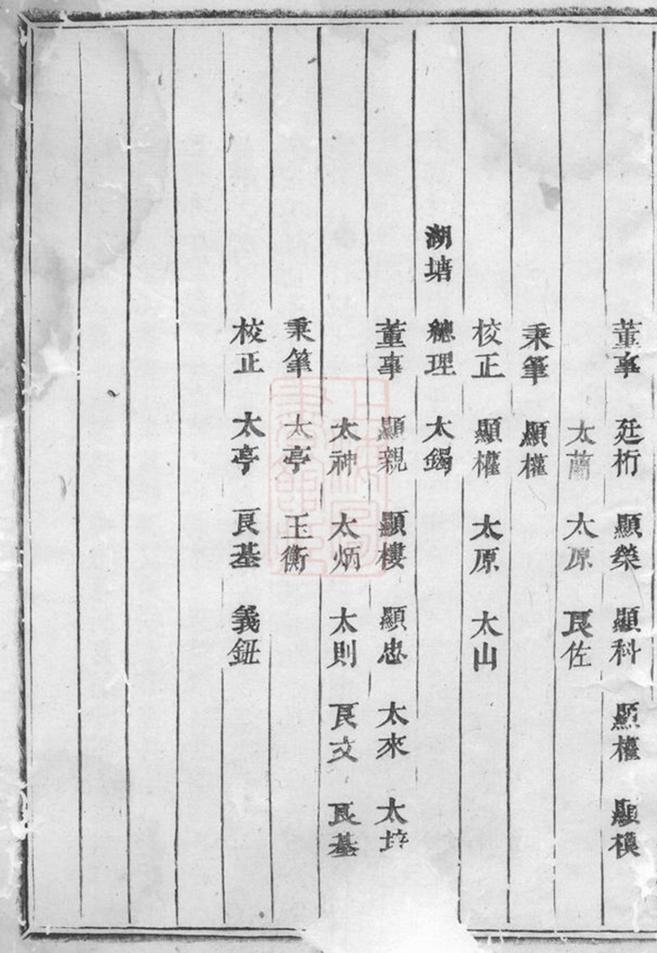 董事 廷桁 顯榮 顯科 顯權 顯模
太蘭 太原 良佐
秉筆 顯權
校正 顯權 太原 太山
湖塘 總理 太鍚
董事 顯親 顯樓 顯忠 太來 太垶
太神 太炳 太則 良文 良基
秉筆 太亭 玉衡
校正 太亭 良基 義鈕